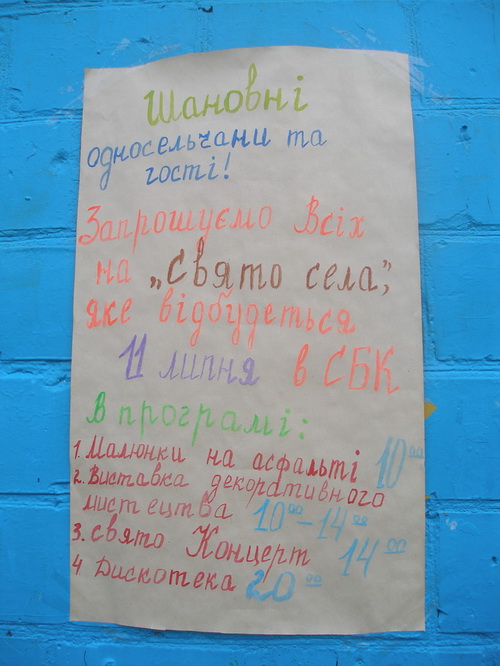 Шановні
односельчани та
гості!
Запрошуємо Всіх
на „Свято села”,
яке відбудеться
11 липня в СБК
В програмі:
1. Малюнки на асфальті 10 00
2. Виставка декоративного
мистецтва 10 00 – 14 00
3. Свято Концерт 14 00
4 Дискотека 20 00